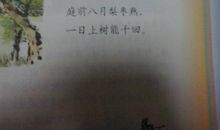 庭前八月梨枣熟,
一日上树能千回。